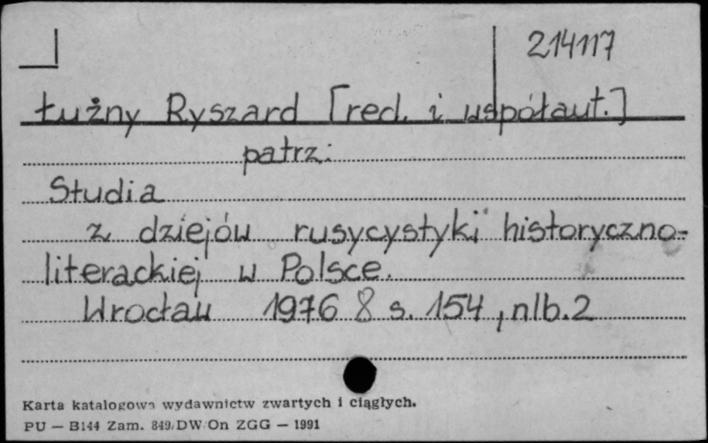 214117
Łużny Ryszard [red. i współaut.]
patrz:
Studia
z dziejów rusycystyki historyczno-
literackiej w Polsce.
Wrocław 1976 8 s. 154, nlb. 2
Karta katalogowa wydawnictw zwartych i ciągłych.
PU — B144 Zam. 849/DW/On ZGG — 1991